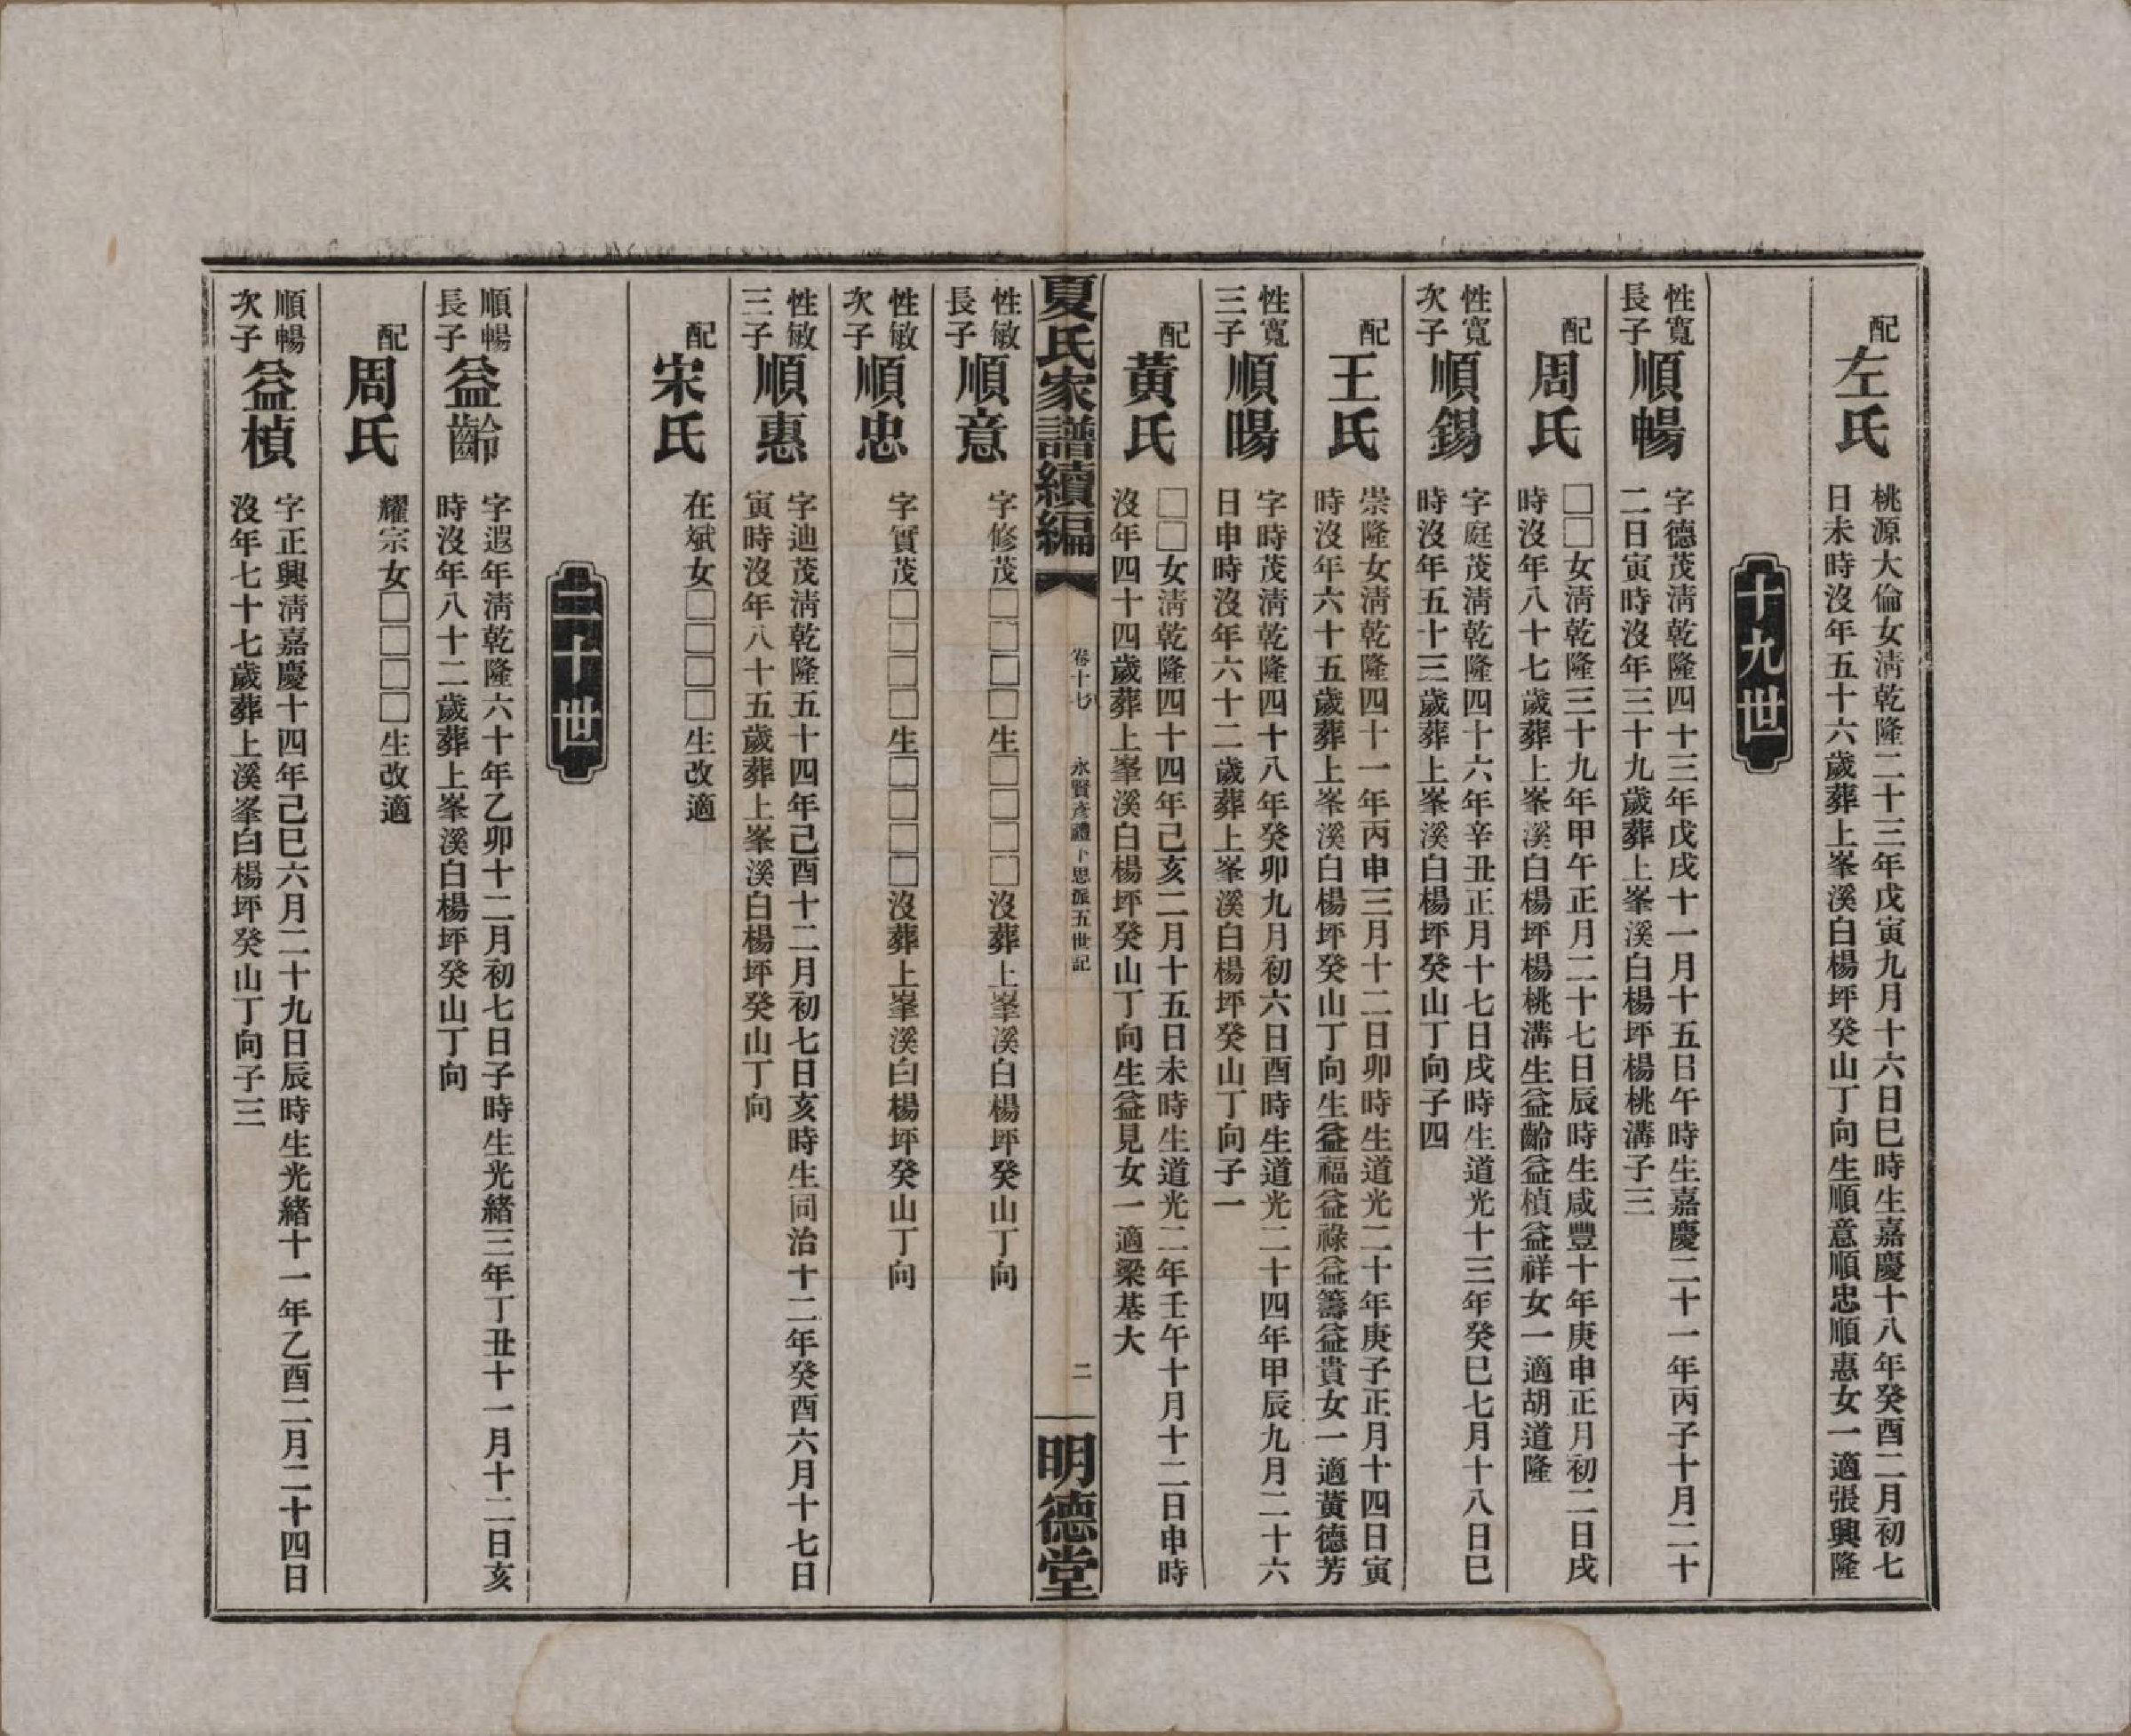 配
左氏
桃源大倫女淸乾隆二十三年戊寅九月十六日巳時生嘉慶十八年癸酉二月初七
日未時沒年五十六歲葬上峯溪白楊坪癸山丁向生順意順忠順惠女一適張興隆
十九世
性寬
長子
順暢
字德茂淸乾隆四十三年戊戌十一月十五日午時生嘉慶二十一年丙子十月二十
二日寅時沒年三十九歲葬上峯溪白楊坪楊桃溝子三
配
周氏
□□女淸乾隆三十九年甲午正月二十七日辰時生咸豐十年庚申正月初二日戌
時沒年八十七歲葬上峯溪白楊坪楊桃溝生益齡益楨益祥女一適胡道隆
性寬
次子
順錫
字庭茂淸乾隆四十六年辛丑正月十七日戌時生道光十三年癸巳七月十八日巳
時沒年五十三歲葬上峯溪白楊坪癸山丁向子四
配
王氏
崇隆女淸乾隆四十一年丙申三月十二日卯時生道光二十年庚子正月十四日寅
時沒年六十五歲葬上峯溪白楊坪癸山丁向生益福益祿益籌益貴女一適黃德芳
性寬
三子
順暘
字時茂淸乾隆四十八年癸卯九月初六日酉時生道光二十四年甲辰九月二十六
日申時沒年六十二歲葬上峯溪白楊坪癸山丁向子一
配
黃氏
□□女淸乾隆四十四年己亥二月十五日未時生道光二年壬午十月十二日申時
沒年四十四歲葬上峯溪白楊坪癸山丁向生益見女一適梁基大
夏氏家譜續編
卷十七八
永賢彥禮卜思派五世記
二
明德堂
性敏
長子
順意
字修茂□□□□生□□□□沒葬上峯溪白楊坪癸山丁向
性敏
次子
順忠
字實茂□□□□生□□□□沒葬上峯溪白楊坪癸山丁向
性敏
三子
順惠
字迪茂淸乾隆五十四年己酉十二月初七日亥時生同治十二年癸酉六月十七日
寅時沒年八十五歲葬上峯溪白楊坪癸山丁向
配
宋氏
在斌女□□□□生改適
二十世
順暢
長子
益齡
字遐年淸乾隆六十年乙卯十二月初七日子時生光緒三年丁丑十一月十二日亥
時沒年八十二歲葬上峯溪白楊坪癸山丁向
配
周氏
耀宗女□□□□生改適
順暢
次子
益楨
字正興淸嘉慶十四年己巳六月二十九日辰時生光緒十一年乙酉二月二十四日
沒年七十七歲葬上溪峯白楊坪癸山丁向子三